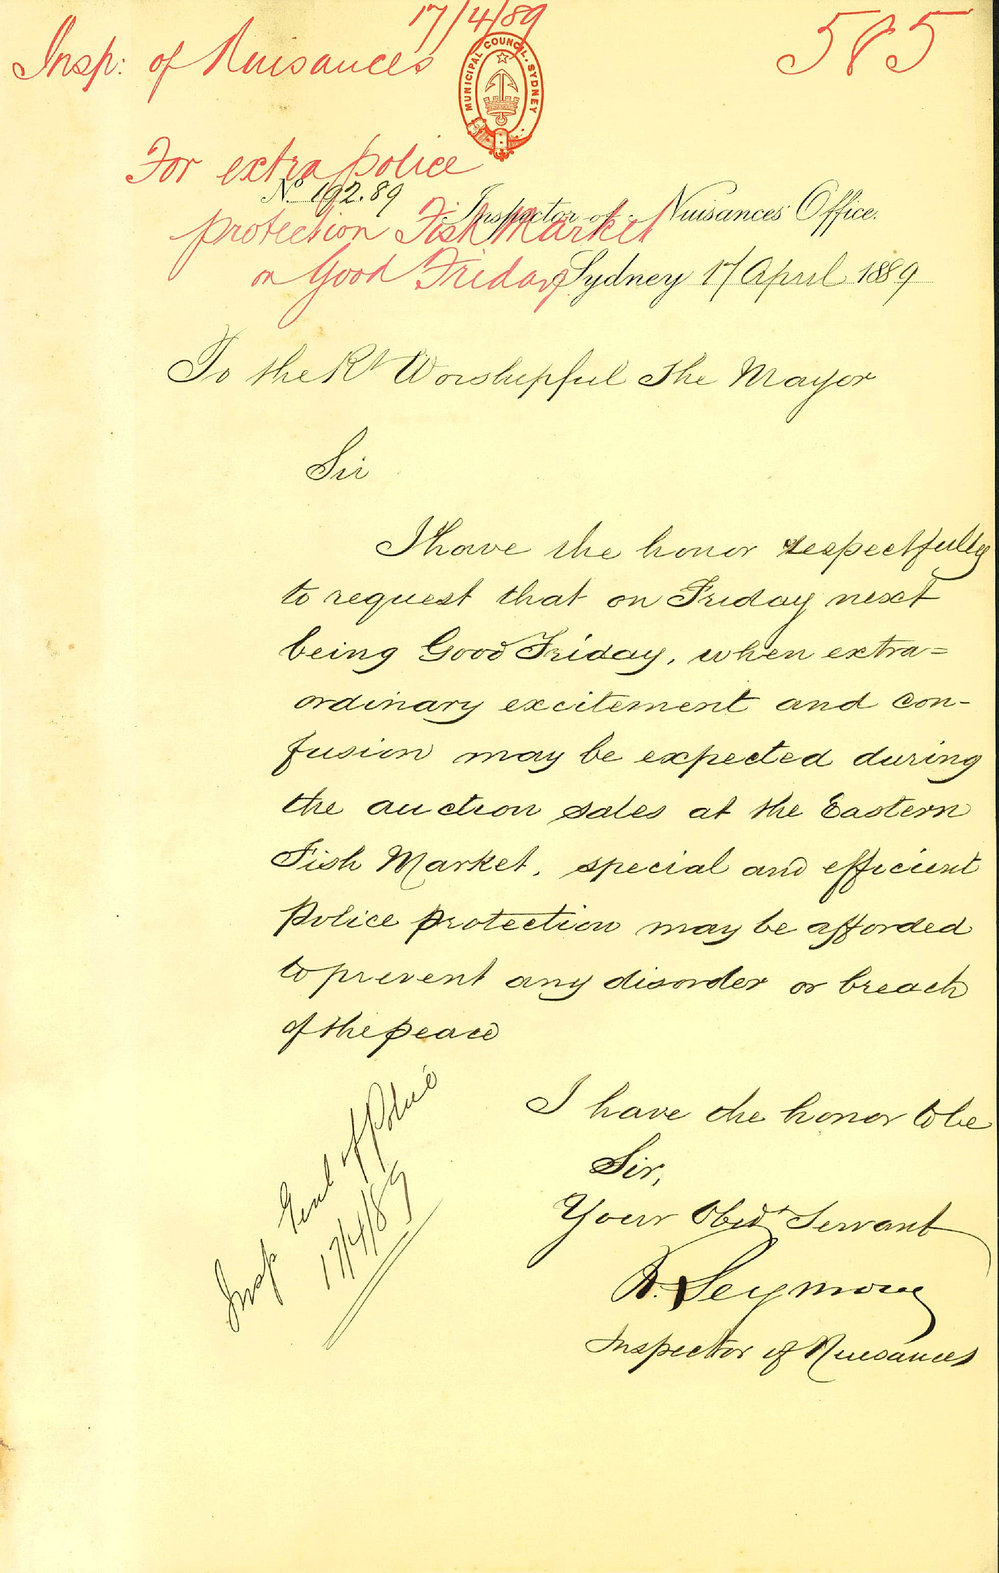 17/4/89
Insp: of Nuisances
585
MUNICIPAL COUNCIL. SYDNEY
For extra police
No. 192.89
Inspector of Nuisances Office.
protection Fish Market
on Good Friday
Sydney 17 April 1889
To the Rt Worshipful The Mayor
Sir
I have the honor respectfully
to request that on Friday next
being Good Friday, when extra=
ordinary excitement and con-
fusion may be expected during
the auction sales at the Eastern
Fish Market, special and efficient
police protection may be afforded
to prevent any disorder or breach
of the peace
I have the honor to be
Sir,
Your Obedt Servant
R. Seymour
Inspector of Nuisances
Insp Genl of Police
17/4/89